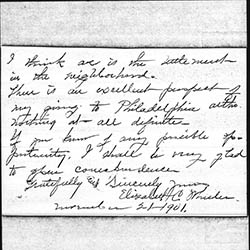 I think as is the settlement
in the neighborhood.
There is an excellent prospect of
my going to Philadelphia altho
nothing at all definite.
If you know of any possible op-
portunity, I shall be very glad
to your
Gratefully & Sincerely yours
Elizabeth C.
November 21-1901.